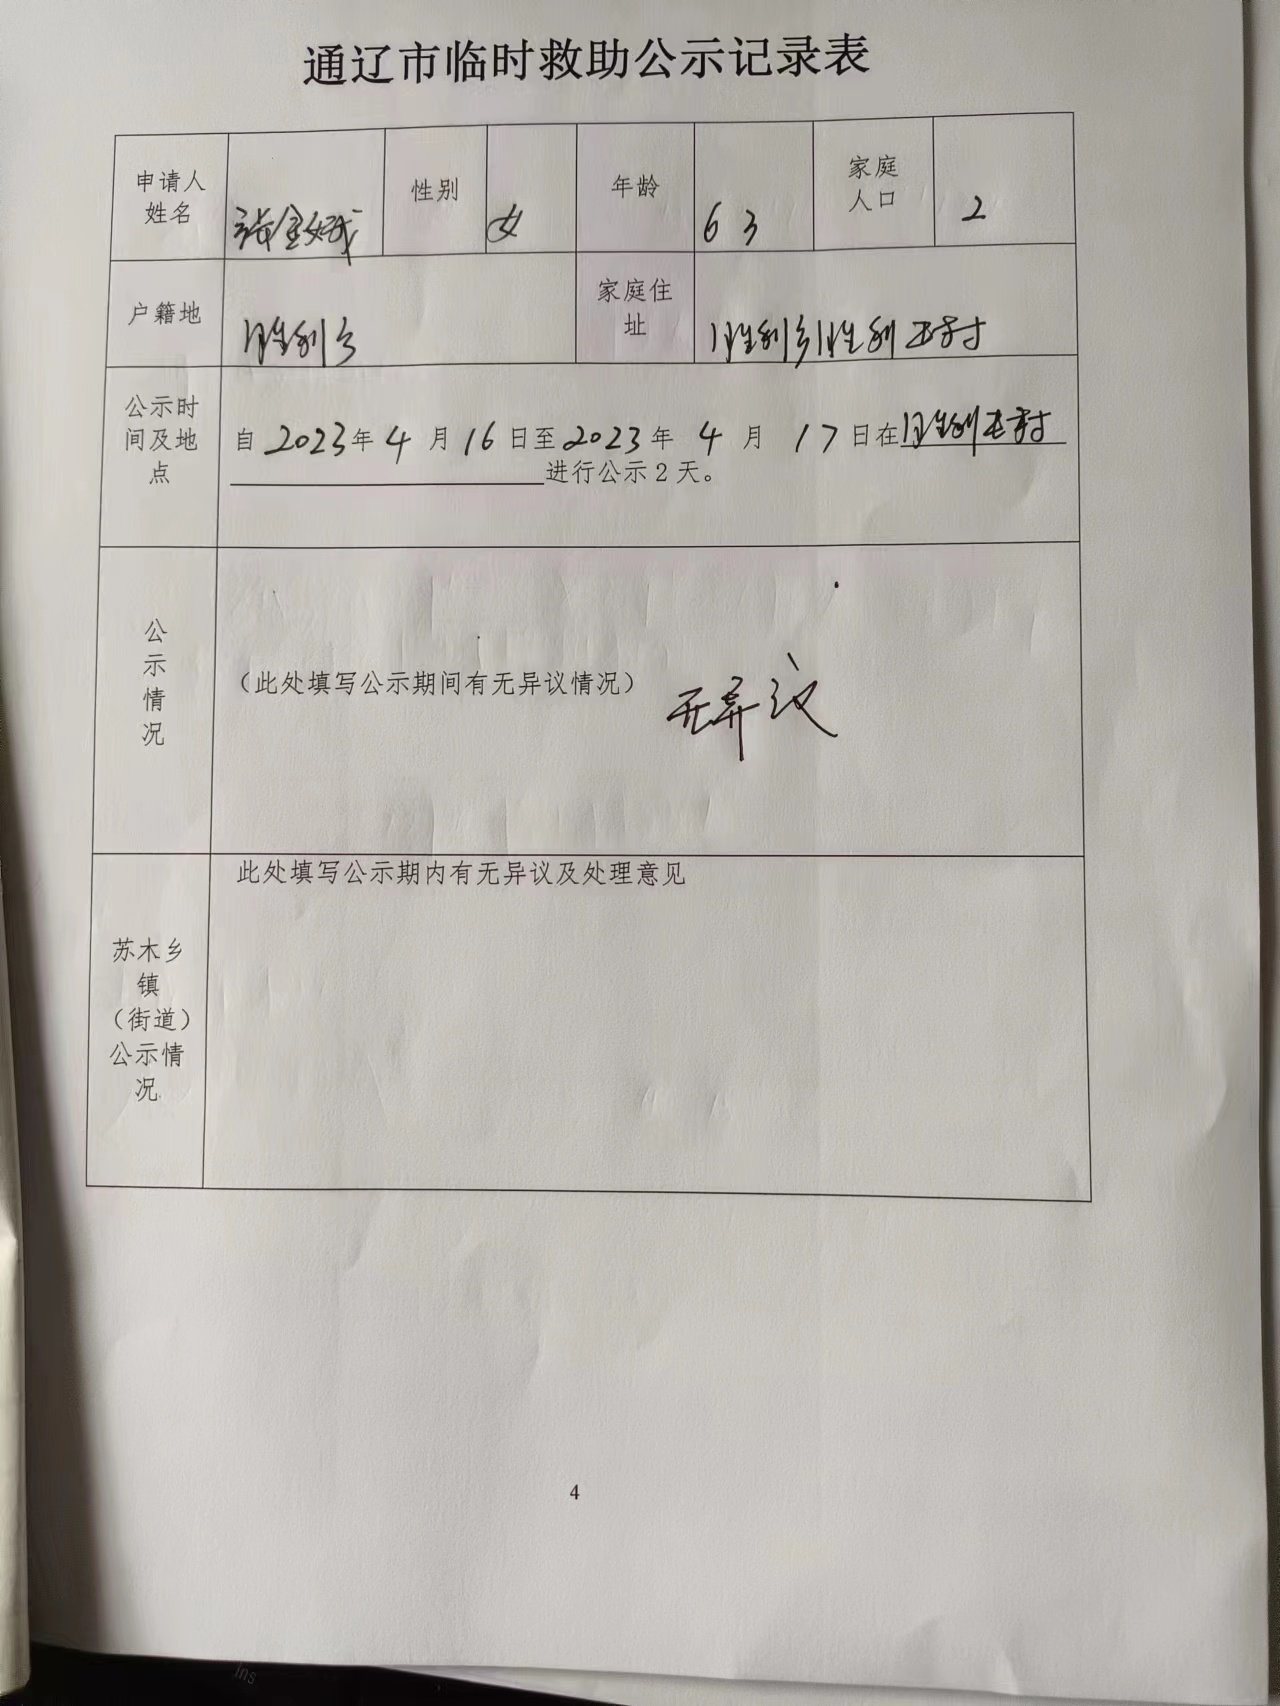 通辽市临时救助公示记录表
申请人
姓名
性别
女
年龄
63
家庭
人口
2
户籍地
胜利乡
家庭住
址
胜利乡胜利 村
公示时
间及地
点
自2023年4月16日至2023年4月17日在胜利 村
进行公示2天。
公
示
情
况
(此处填写公示期间有无异议情况)
无异议
苏木乡
镇
(街道)
公示情
况
此处填写公示期内有无异议及处理意见
4
ins